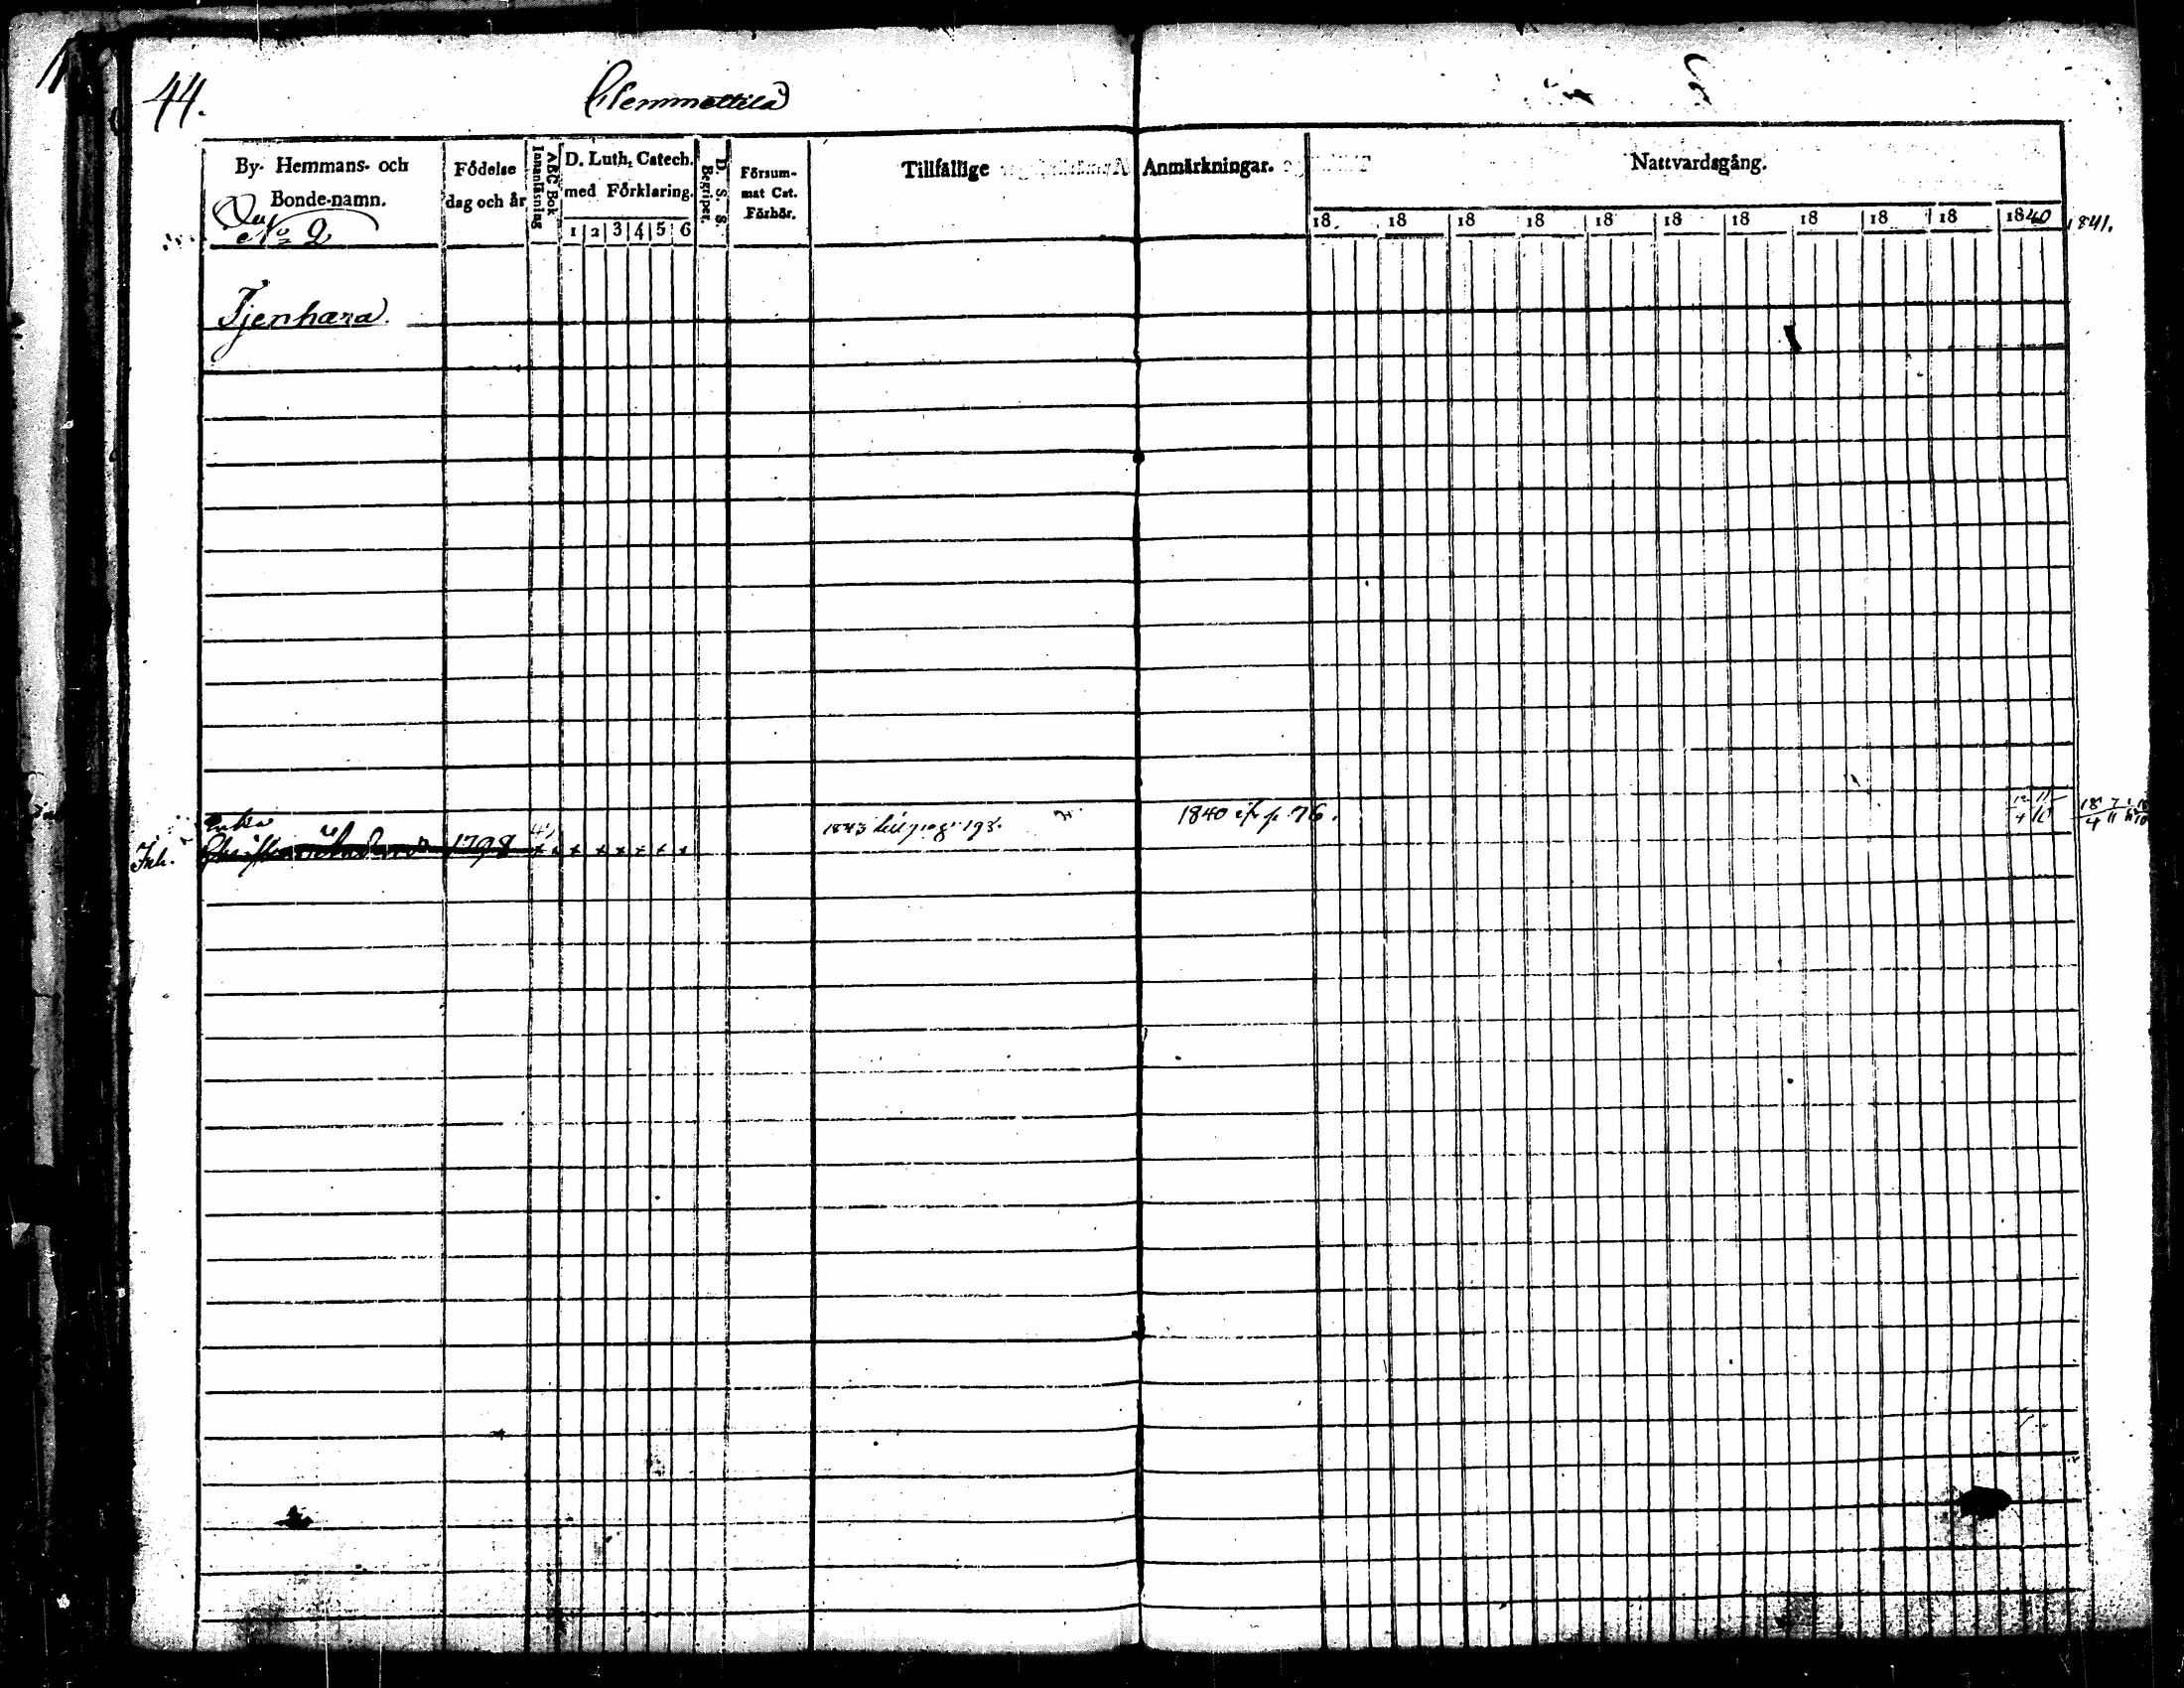 44.
Clemmettilä
By- Hemmans- och
Bonde-namn.
No 2
Födelse
dag och år
ABC Bok
Innanläsning
D. Luth. Catech.
med Förklaring.
1 2 3 4 5 6
D. S. S.
Begriper.
Försum-
mat Cat.
Förhör.
Tillfällige Anmärkningar.
Nattvardsgång.
18 18 18 18 18 18 18 18 18 18 1840 1841.
Tjenhæra
Enka
Inh. 1798
1840 p. 76.